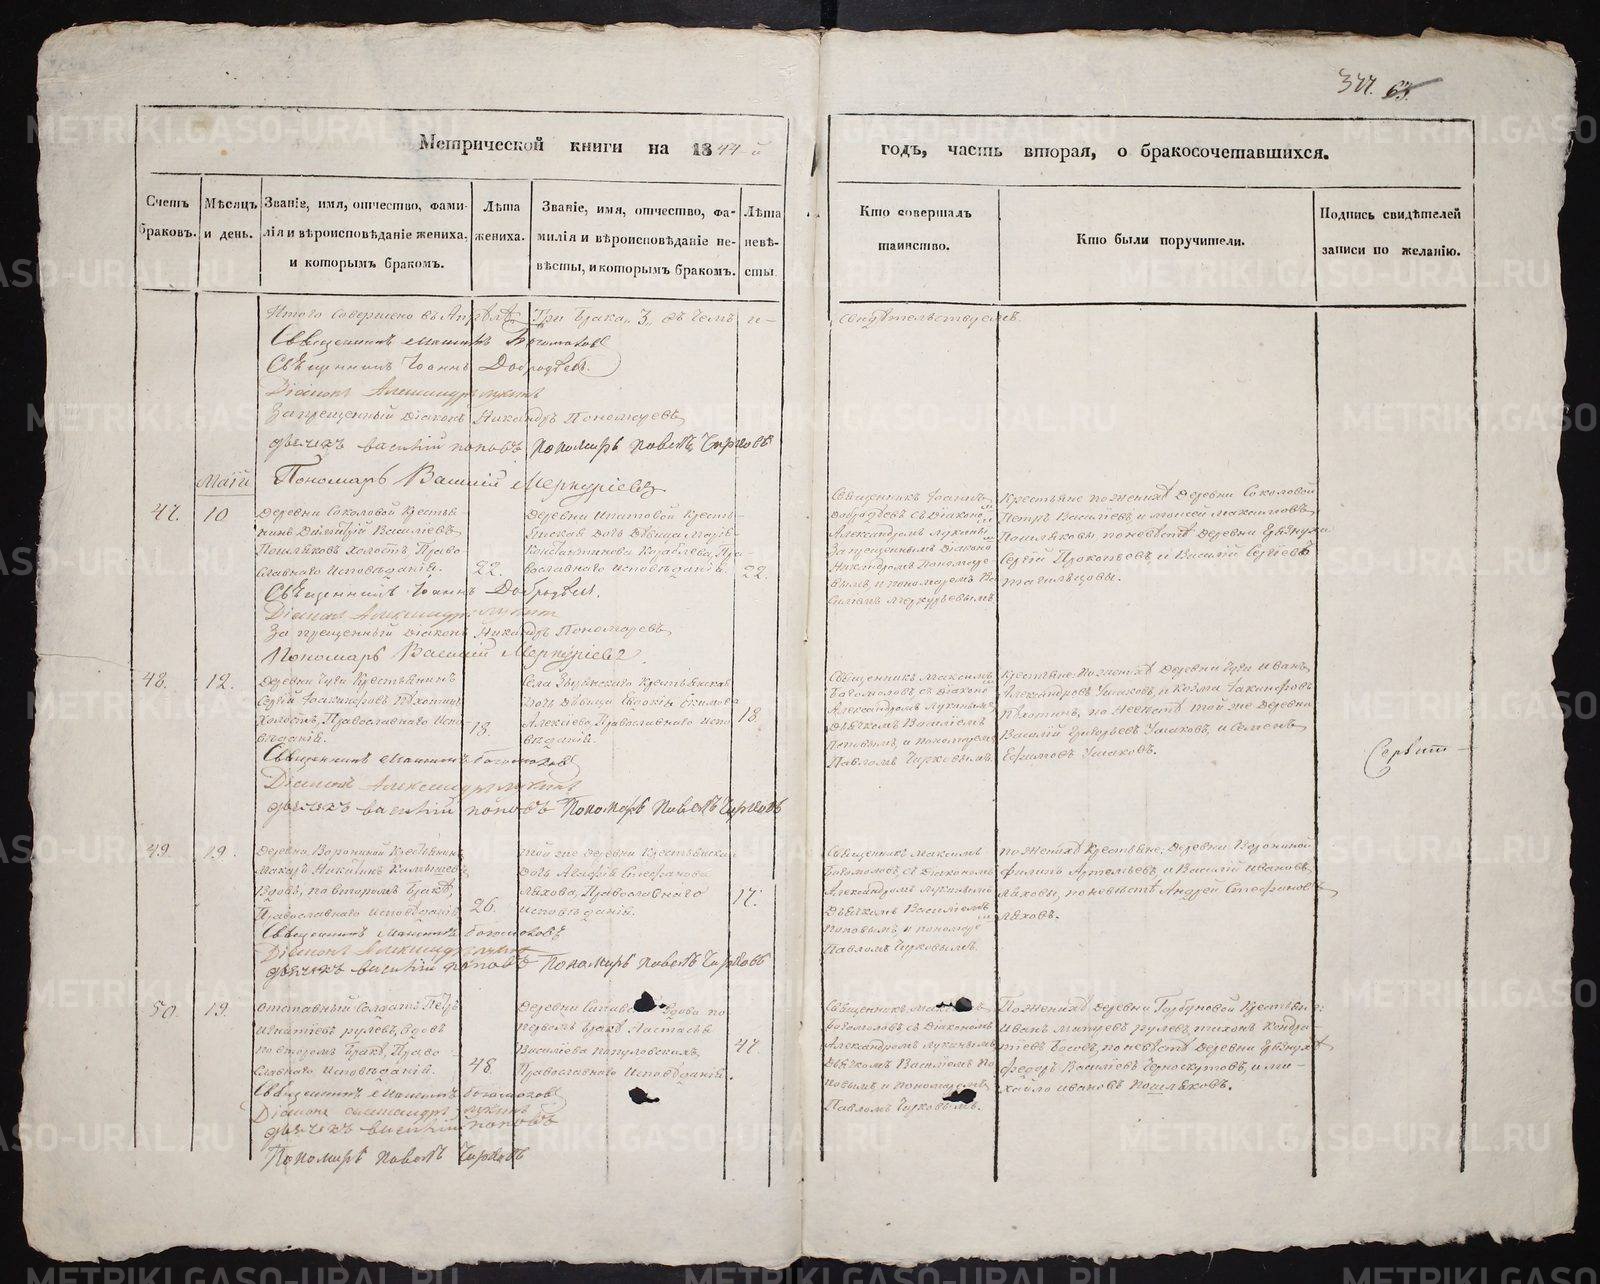 377. 63.
Метрической книги на 1844-й
годъ, часть вторая, о бракосочетавшихся.
Счетъ браковъ.
Мѣсяцъ и день.
Званіе, имя, отчество, фами-
лія и вѣроисповѣданіе жениха,
и которымъ бракомъ.
Лѣта
жениха.
Званіе, имя, отчество, фа-
милія и вѣроисповѣданіе не-
вѣсты, и которымъ бракомъ.
Лѣта
невѣ-
сты.
Кто совершалъ
таинство.
Кто были поручители.
Подпись свидѣтелей
записи по желанію.
Итого совершено въ Апрѣлѣ Три брака „3„ въ чемъ и-
свидѣтельствуемъ.
Священникъ Максимъ Богомоловъ
Священникъ Іоаннъ Добродѣевъ.
Діаконъ Александръ Лукинъ
Запрещенный діаконъ Никандръ Пономаревъ
Дьячекъ Василій Поповъ Пономарь Павелъ Чирковъ
Пономарь Василій Меркуріевъ
Маій
47. 10
Деревни Соколовой Крестья-
нинъ Димитрій Васильевъ
Пошляковъ холостъ Право-
славнаго Исповѣданія.
22.
Деревни Ипатовой Кресть-
янская дочь Дѣвица Марія
Константинова Кораблева, Пра-
вославнаго исповѣданія.
22.
Священникъ Іоаннъ
Добродѣевъ съ Діакономъ
Александромъ Лукинымъ
Запрещеннымъ Діакономъ
Никандромъ Пономаре-
вымъ, и пономаремъ Ва-
силіемъ Меркурьевымъ
Крестьяне по женихѣ Деревни Соколовой
Петръ Васильевъ, и Моисей Максимовъ
Пошляковы, по невѣстѣ Деревни
Сергій Прокопьевъ, и Василій Сергіевъ
Тагильцовы.
Священникъ Іоаннъ Добродѣевъ.
Діаконъ Александръ Лукинъ
Запрещенный діаконъ Никандръ Пономаревъ
Пономарь Василій Меркуріевъ.
48. 12.
Холостъ, Православнаго Испо-
вѣданія.
18.
Села крестьянская
дочь Дѣвица Евдокія
Алексіева, Православнаго испо-
вѣданія.
18
Священникъ Максимъ
Богомоловъ съ Діакономъ
Александромъ Лукинымъ
Дьячкомъ Василіемъ
Поповымъ, и пономаремъ
Павломъ Чирковымъ.
Крестьяне: По женихѣ Деревни Иванъ
Александровъ Ушаковъ, и Козма
Пѣхотинъ, по невѣстѣ той же Деревни
Василій Григорьевъ Ушаковъ, и Семенъ
Ефимовъ Ушаковъ.
Священникъ Максимъ Богомоловъ
Діаконъ Александръ Лукинъ
Дьячекъ Василій Поповъ Пономарь Павелъ Чирковъ
49. 19.
Деревни Ворониной Крестьянинъ
Макаръ Никитинъ
Вдовъ, по второмъ бракѣ,
Православнаго исповѣданія
26.
Той же деревни Крестьянская
дочь Агафія Стефанова
Ляхова, Православнаго
исповѣданія.
17.
Священникъ Максимъ
Богомоловъ съ Діакономъ
Александромъ Лукинымъ
Дьячкомъ Василіемъ
Поповымъ, и пономаремъ
Павломъ Чирковымъ.
По женихѣ крестьяне: Деревни Ворониной
Филипъ Артемьевъ, и Василій Ивановъ
Ляховы, по невѣстѣ Андрей Стефановъ
Ляховъ.
Священникъ Максимъ Богомоловъ
Діаконъ Александръ Лукинъ
Дьячекъ Василій Поповъ Пономарь Павелъ Чирковъ
50. 19.
Отставный Солдатъ Петръ
Игнатіевъ Рулевъ, вдовъ
по второмъ бракѣ, Право-
славнаго Исповѣданія.
48.
Деревни вдова по
первомъ бракѣ Настасья
Васильева
Православнаго Исповѣданія.
47.
Священникъ Максимъ
Богомоловъ съ Діакономъ
Александромъ Лукинымъ
Дьячкомъ Василіемъ По-
повымъ, и пономаремъ
Павломъ Чирковымъ.
По женихѣ Деревни Горбуновой Крестьяне:
Иванъ Рулевъ, Тихонъ Кондра-
тіевъ Босовъ, по невѣстѣ Деревни
Федоръ Васильевъ Черноскутовъ, и Ми-
хайло Ивановъ Пошляковъ.
Священникъ Максимъ Богомоловъ
Діаконъ Александръ Лукинъ
Дьячекъ Василій Поповъ
Пономарь Павелъ Чирковъ
METRIKI.GASO-URAL.RU